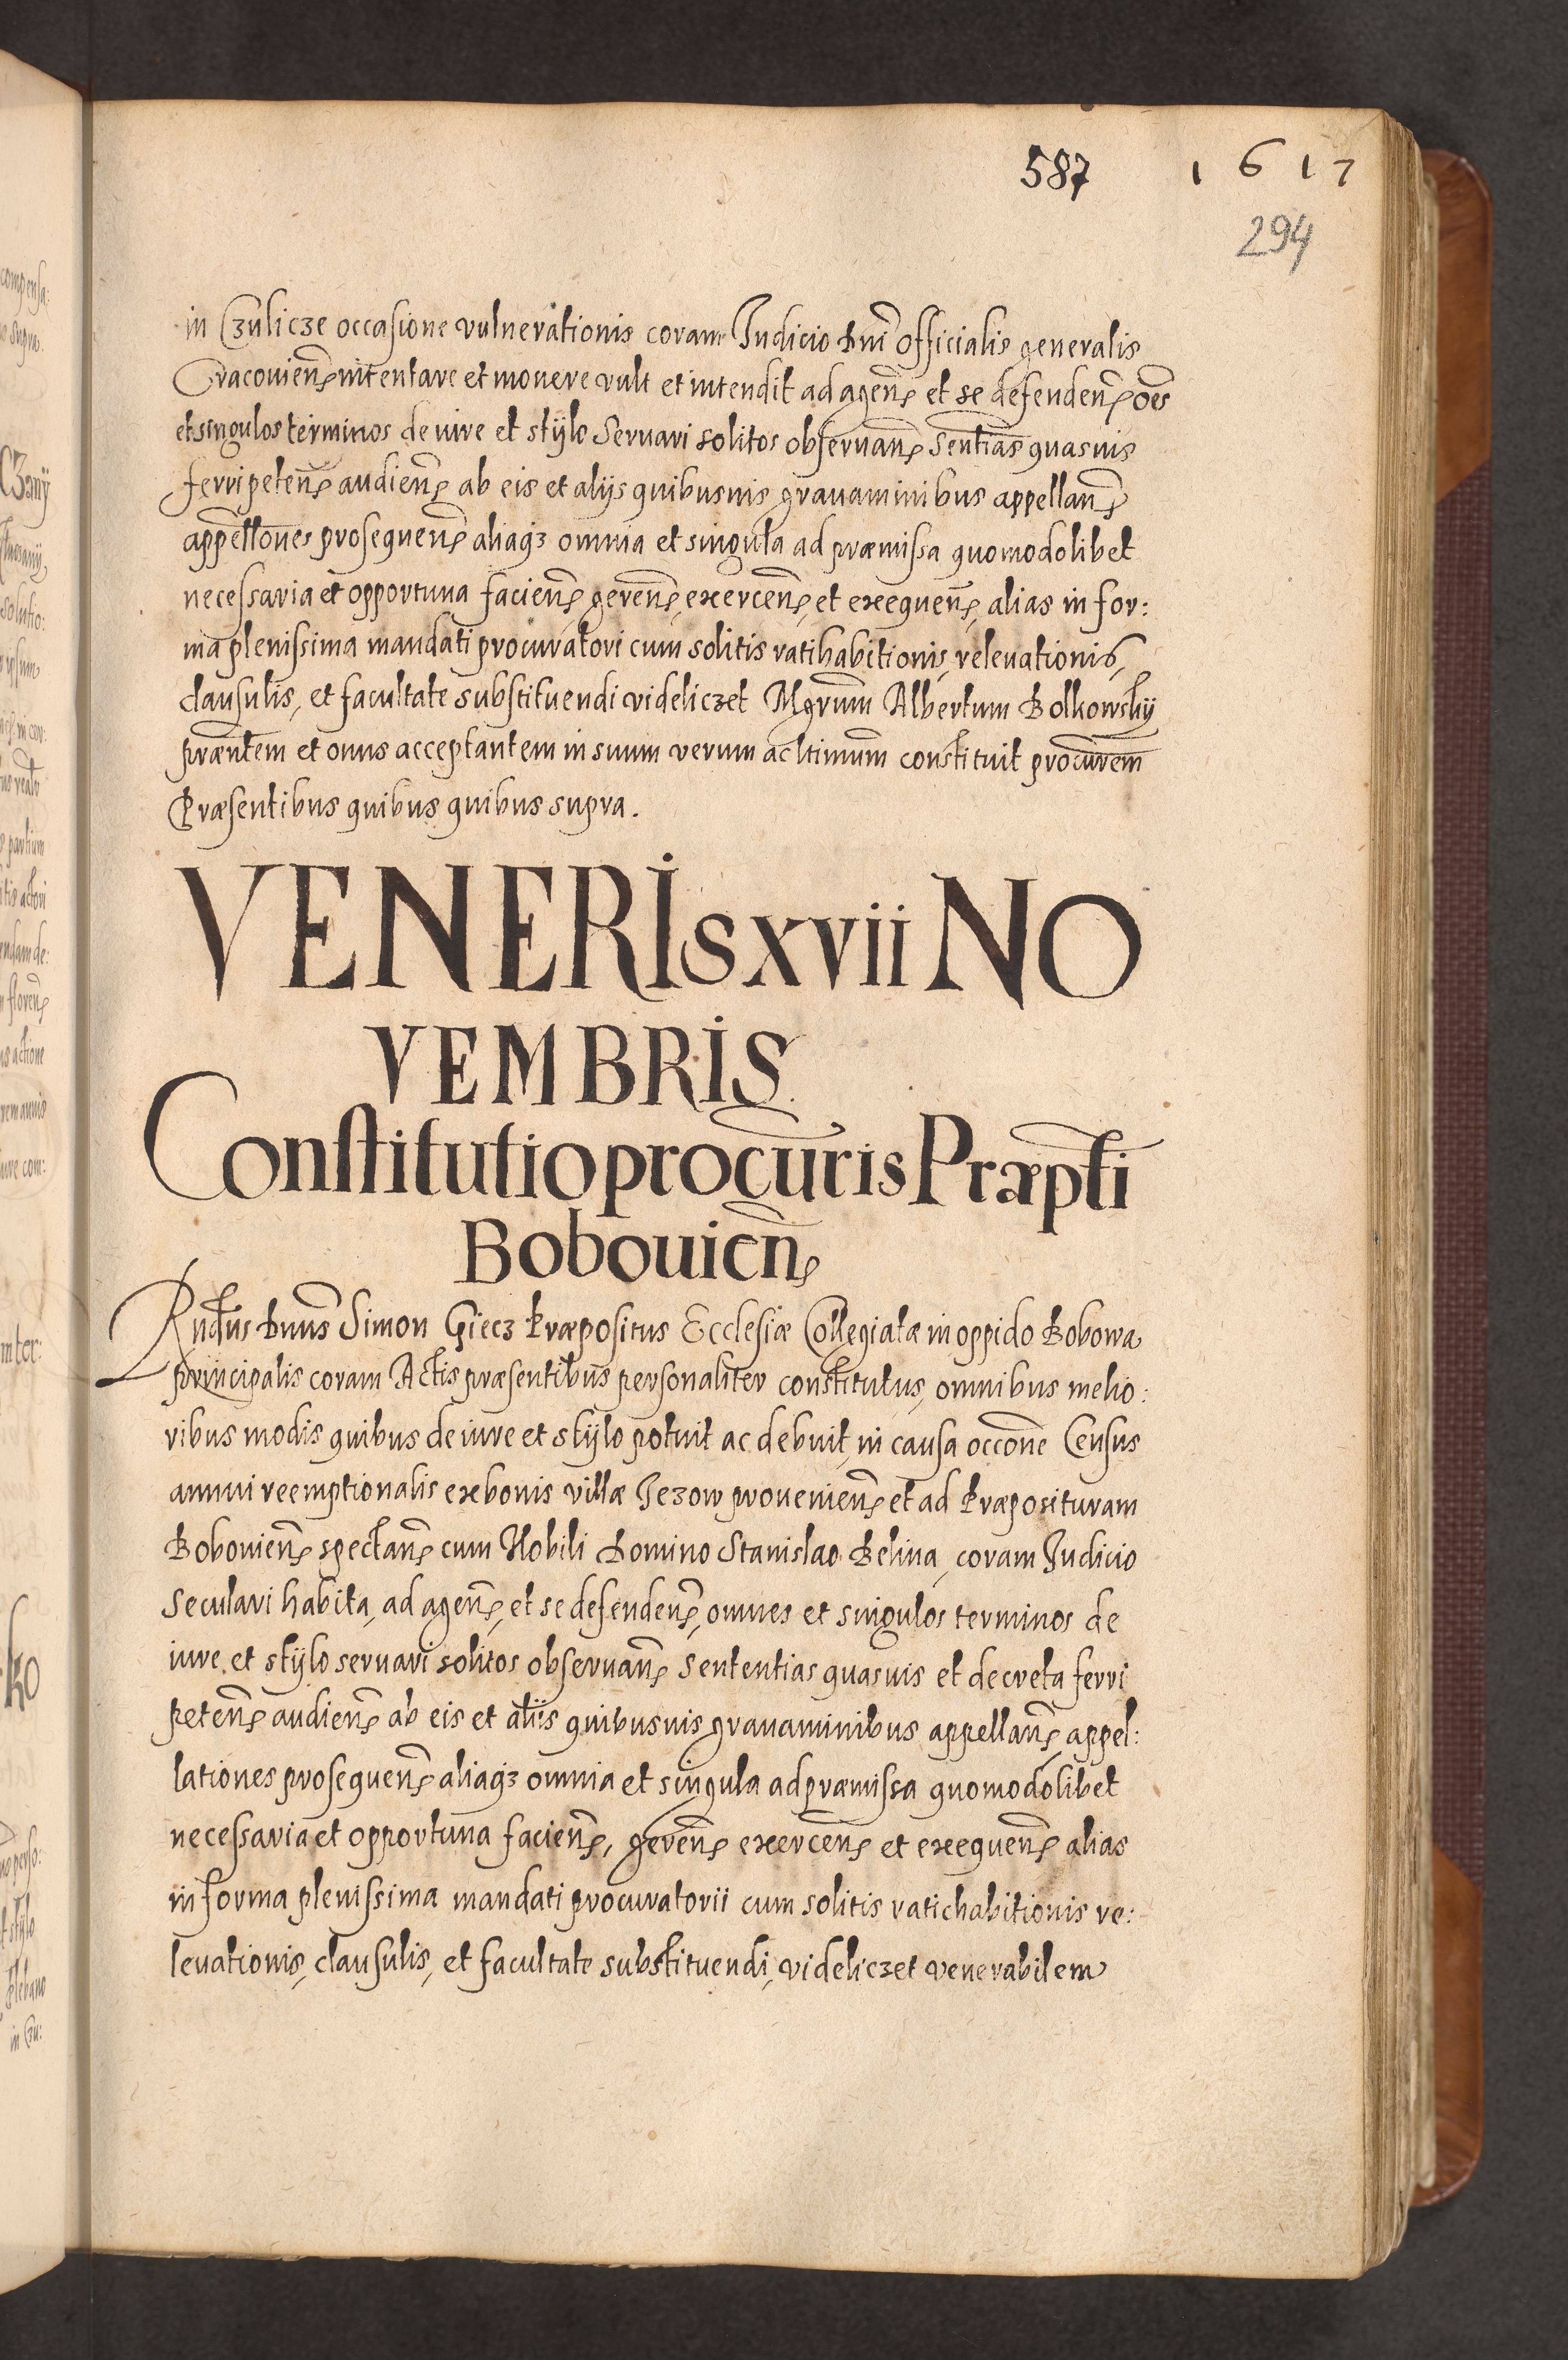 587 1617
294
in Czulicze occasione vulnerationis coram Iudicio Dni Officialis generalis
Cracouien intentare et mouere vult et intendit ad agen et se defenden oes
et singulos terminos de iure et stÿlo Seruari solitos obseruan Sentias quasuis
ferri peten audien ab eis et alijs quibusuis grauaminibus appellan
appellones prosequen aliaqz omnia et singula ad præmissa quomodolibet
necessaria et opportuna facien, geren, exercen, et exequen, alias in for:
ma plenissima mandati procuratori cum solitis ratihabitionis, releuationis,
clausulis, et facultate substituendi videliczet Mgrum Albertum Bolkowskÿ
præntem et onus acceptantem in suum verum ac ltimum constituit procurem
Præsentibus quibus quibus supra.
VENERIS XVII NO
VEMBRIS
Constitutio procuris Præpti
Bobouien
Rndus Dnus Simon Giecz Præpositus Ecclesiæ Collegiatæ in oppido Bobowa
principalis coram Actis præsentibus personaliter constitutus, omnibus melio:
ribus modis quibus de iure et stÿlo potuit ac debuit, in causa occone Census
annui reemptionalis ex bonis villæ Jezow prouenien et ad Præposituram
Bobouien spectan cum Nobili Domino Stanislao Belina, coram Iudicio
Seculari habita, ad agen, et se defenden, omnes et singulos terminos de
iure et stÿlo seruari solitos obseruan Sententias quasuis et decreta ferri
peten audien ab eis et aliis quibusuis grauaminibus appellan, appel:
lationes prosequen aliaqz omnia et singula ad præmissa quomodolibet
necessaria et opportuna facien, geren exercen et exequen alias
in forma plenissima mandati procuratorii cum solitis ratichabitionis re:
leuationis, clausulis, et facultate substituendi, videliczet venerabilem